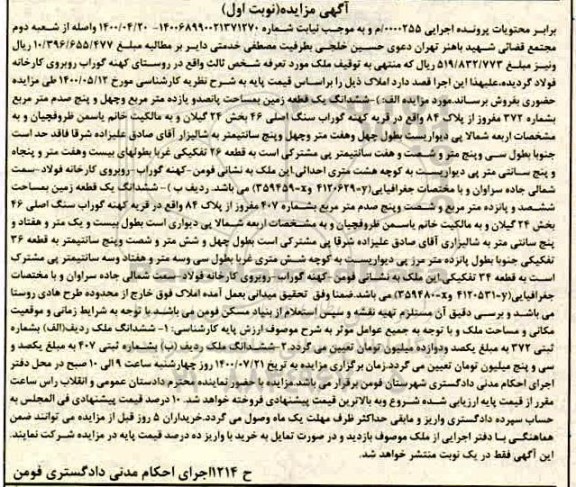 آگهی مزایده(نوبت اول)
برابر محتویات پرونده اجرایی ۰۰۰۰۲۵۵/م و به موجب نیابت شماره ۱۴۰۰۶۸۹۹۰۰۲۱۳۷۱۲۷۰- ۱۴۰۰/۰۴/۲۰ واصله از شعبه دوم
مجتمع قضائی شهید باهنر تهران دعوی حسین خلجی بطرفیت مصطفی خدمتی دایر بر مطالبه مبلغ ۱۰/۳۹۶/۶۵۵/۴۷۷ ریال
ونیز مبلغ ۵۱۹/۸۳۲/۷۷۳ ریال که منتهی به توقیف ملک مورد تعرفه شخص ثالث واقع در روستای کهنه گوراب روبروی کارخانه
فولاد گردیده،علیهذا این اجرا قصد دارد املاک ذیل را براساس قیمت پایه به شرح نظریه کارشناسی مورخ ۱۴۰۰/۰۵/۱۲ طی مزایده
حضوری بفروش برساند.مورد مزایده الف:)- ششدانگ یک قطعه زمین بمساحت پانصدو یازده متر مربع وچهل و پنج صدم متر مربع
بشماره ۳۷۲ مفروز از پلاک ۸۴ واقع در قریه کهنه گوراب سنگ اصلی ۴۶ بخش ۲۴ گیلان و به مالکیت خانم یاسمن ظروفچیان و به
مشخصات اربعه شمالا پی دیواریست بطول چهل وهفت متر وچهل وپنج سانتیمتر به شالیزار آقای صادق علیزاده شرقا فاقد حد است
جنوبا بطول سی وپنج متر و شصت و هفت سانتیمتر پی مشترکی است به قطعه ۲۶ تفکیکی غربا بطولهای بیست وهفت متر و پنجاه
و پنج سانتی متر پی دیواریست به کوچه هشت متری احداثی.این ملک به نشانی فومن-کهنه گوراب-روبروی کارخانه فولاد-سمت
شمالی جاده سراوان و با مختصات جغرافیایی(۴۱۲۰۶۲۹-y و ۳۵۹۴۵۹-x) می باشد. ردیف ب)- ششدانگ یک قطعه زمین بمساحت
ششصد و پانزده متر مربع و شصت وپنج صدم متر مربع بشماره ۴۰۷ مفروز از پلاک ۸۴ واقع در قریه کهنه گوراب سنگ اصلی ۴۶
بخش ۲۴ گیلان و به مالکیت خانم یاسمن ظروفچیان و به مشخصات اربعه شمالا پی دیواری است بطول بیست و یک متر و هفتاد و
پنج سانتی متر به شالیزاری آقای صادق علیزاده شرقا پی مشترکی است بطول چهل و شش متر و شصت وپنج سانتیمتر به قطعه ۳۶
تفکیکی جنوبا بطول پانزده متر مرز پی دیواریست به کوچه شش متری غربا بطول سی وسه متر و هفتاد وسه سانتیمتر پی مشترک
است به قطعه ۳۴ تفکیکی.این ملک به نشانی فومن-کهنه گوراب- روبروی کارخانه فولاد-سمت شمالی جاده سراوان و با مختصات
جغرافیایی(۴۱۲۰۵۳۱-y و ۳۵۹۴۸۰-x) می باشد.ضمنا وفق تحقیق میدانی بعمل آمده املاک فوق خارج از محدوده طرح هادی روستا
می باشد و بررسی دقیق آن مستلزم تهیه نقشه و سپس استعلام از بنیاد مسکن فومن می باشد.با توجه به شرایط زمانی و موقعیت
مکانی و مساحت ملک و با توجه به جمیع عوامل موثر به شرح موصوف ارزش پایه کارشناسی: ۱- ششدانگ ملک ردیف(الف) بشماره
ثبتی ۳۷۲ به مبلغ یکصد ودوازده میلیون تومان تعیین می گردد.۲-ششدانگ ملک ردیف (ب) بشماره ثبتی ۴۰۷ به مبلغ یکصد و
سی و پنج میلیون تومان تعیین می گردد.زمان برگزاری مزایده به تاریخ ۱۴۰۰/۰۷/۲۱ روز چهارشنبه ساعت ۹ الی ۱۰ صبح در محل دفتر
اجرای احکام مدنی دادگستری شهرستان فومن برقرار می باشد.مزایده با حضور نماینده محترم دادستان عمومی و انقلاب راس ساعت
مقرر از قیمت پایه ارزیابی شده شروع وبه بالاترین قیمت پیشنهادی فروخته خواهد شد. ۱۰ درصد قیمت پیشنهادی فی المجلس به
حساب سپرده دادگستری واریز و مابقی حداکثر ظرف مهلت یک ماه وصول می گردد.خریداران ۵ روز قبل از مزایده می توانند ضمن
هماهنگی با دفتر اجرایی از ملک موصوف بازدید و در صورت تمایل به خرید با واریز ده درصد قیمت پایه در مزایده شرکت نمایند.
این آگهی فقط در یک نوبت منتشر خواهد شد.
ح ۱۲۱۴اجرای احکام مدنی دادگستری فومن